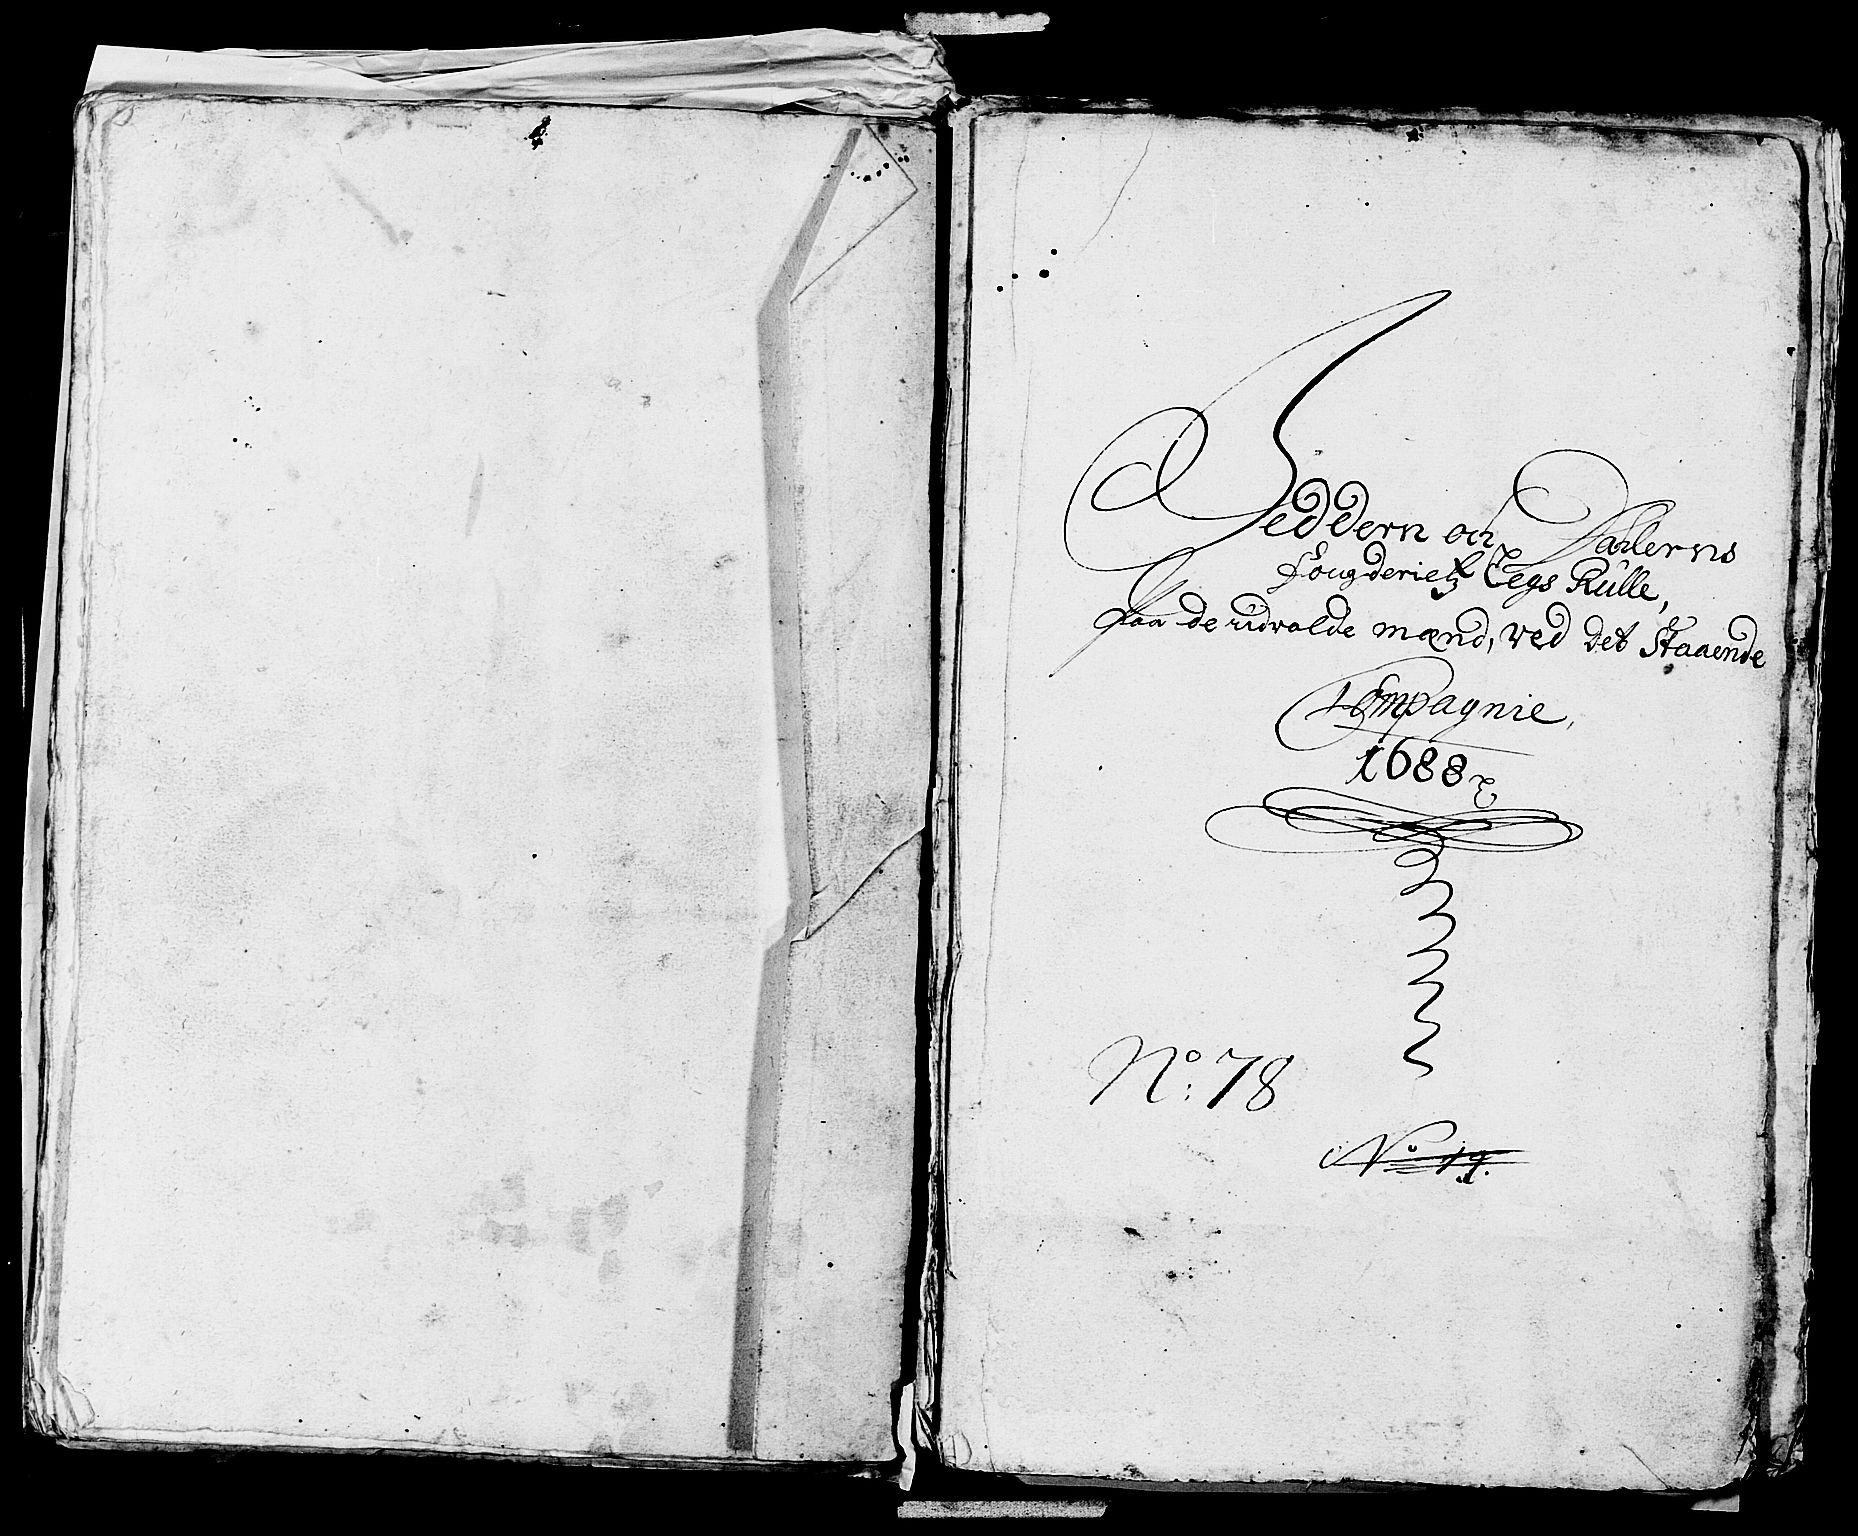 Jeddern och Dahlerns
fougderietz Legs Rulle,
Paa de udvalde mænd, ved det Staaende
Compagnie,
1688
No: 78
No 19.